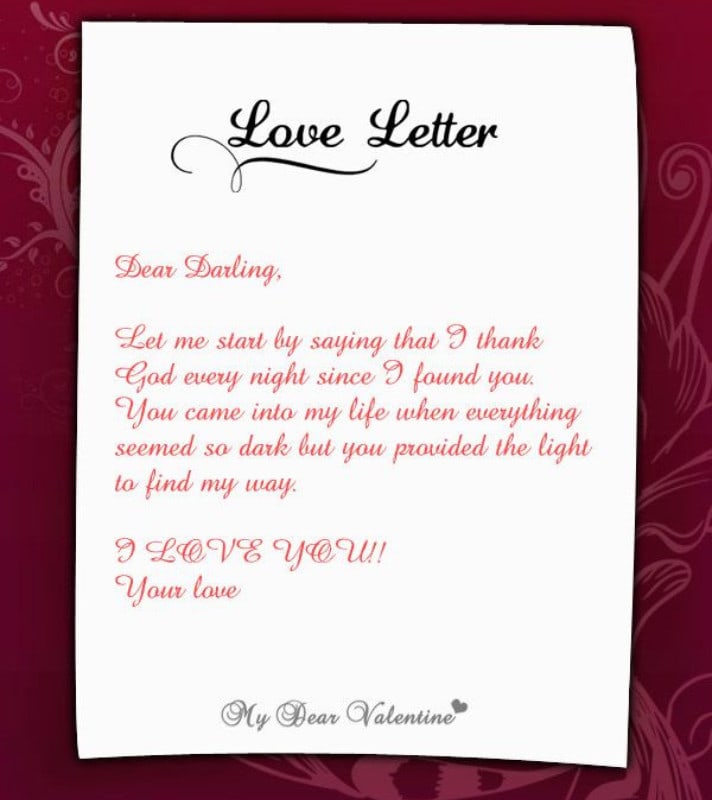 Love Letter
Dear Darling,
Let me start by saying that I thank
God every night since I found you.
You came into my life when everything
seemed so dark but you provided the light
to find my way.
I LOVE YOU!!
Your love
My Dear Valentine